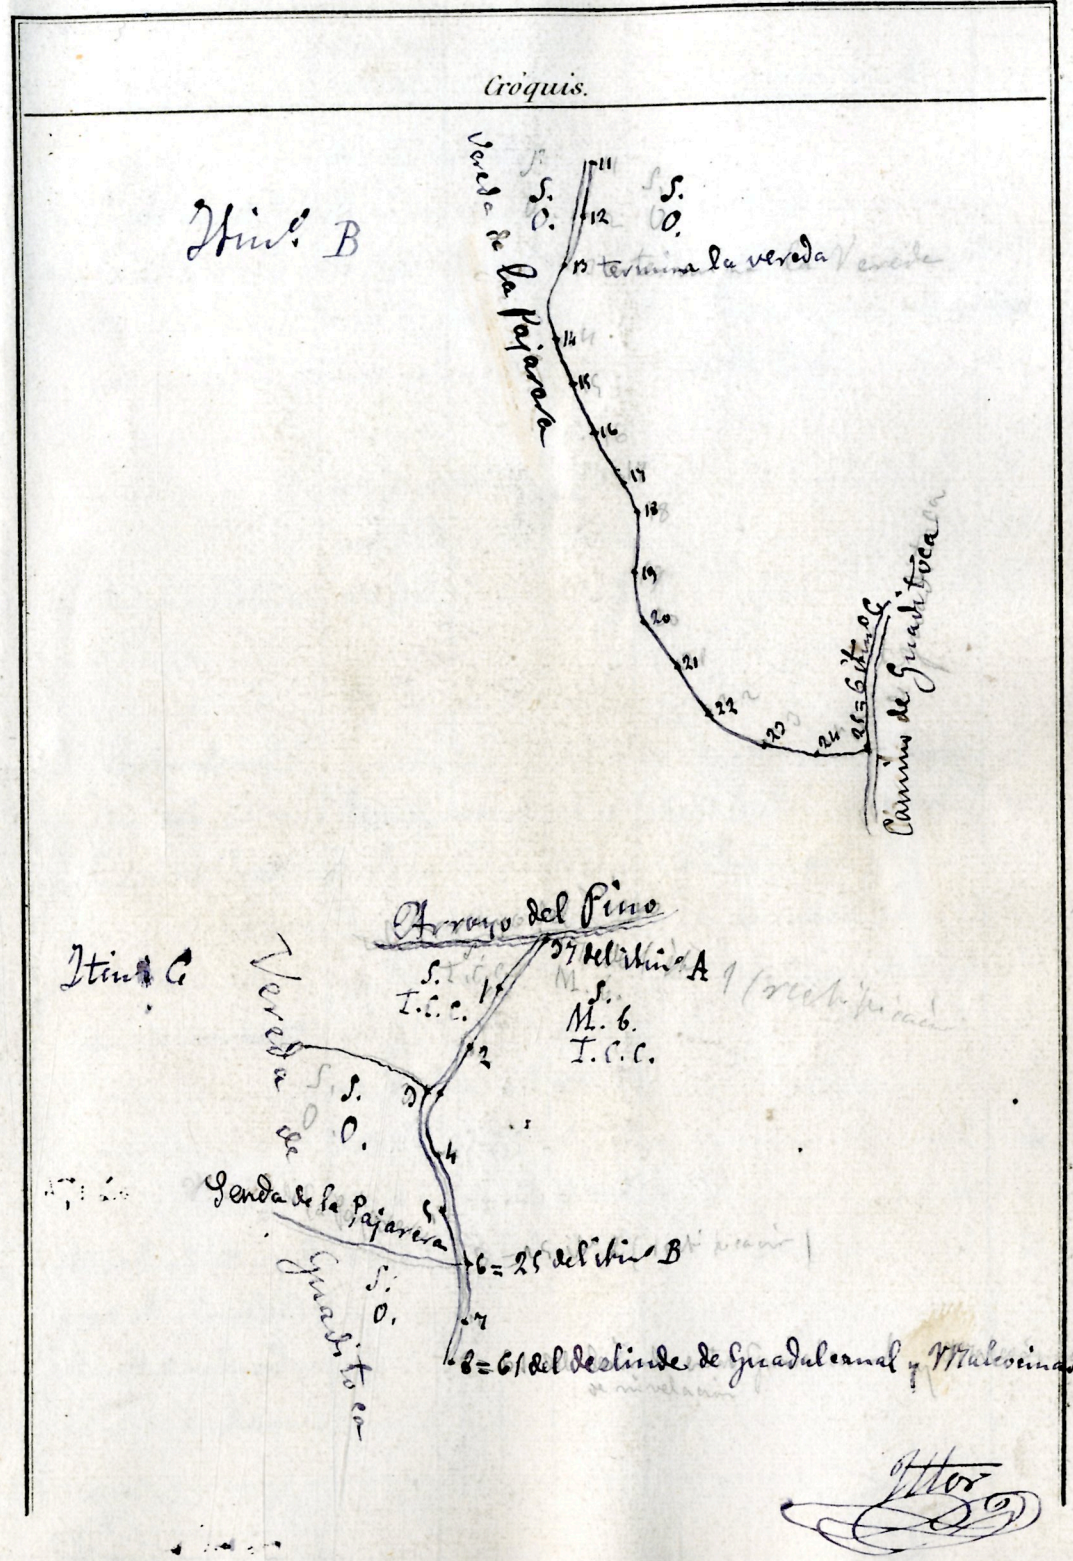 Cróquis.
Itinº B
Vereda de la Pajarera
S.
O.
S.
O.
11
12
13 termina la vereda
14
15
16
17
18
19
20
21
22
23
24
25=6 itinº C
Camino de Guaditoca
Arroyo del Pino
Itinº C
37 del itinº A
S.
T.C.C.
1
S.
M. b.
T.C.C.
2
3
Vereda de Guaditoca
S.
O.
4
Senda de la Pajarera
5
6=25 del itinº B
S.
O.
7
8=61 del deslinde de Guadalcanal y Malcocinado